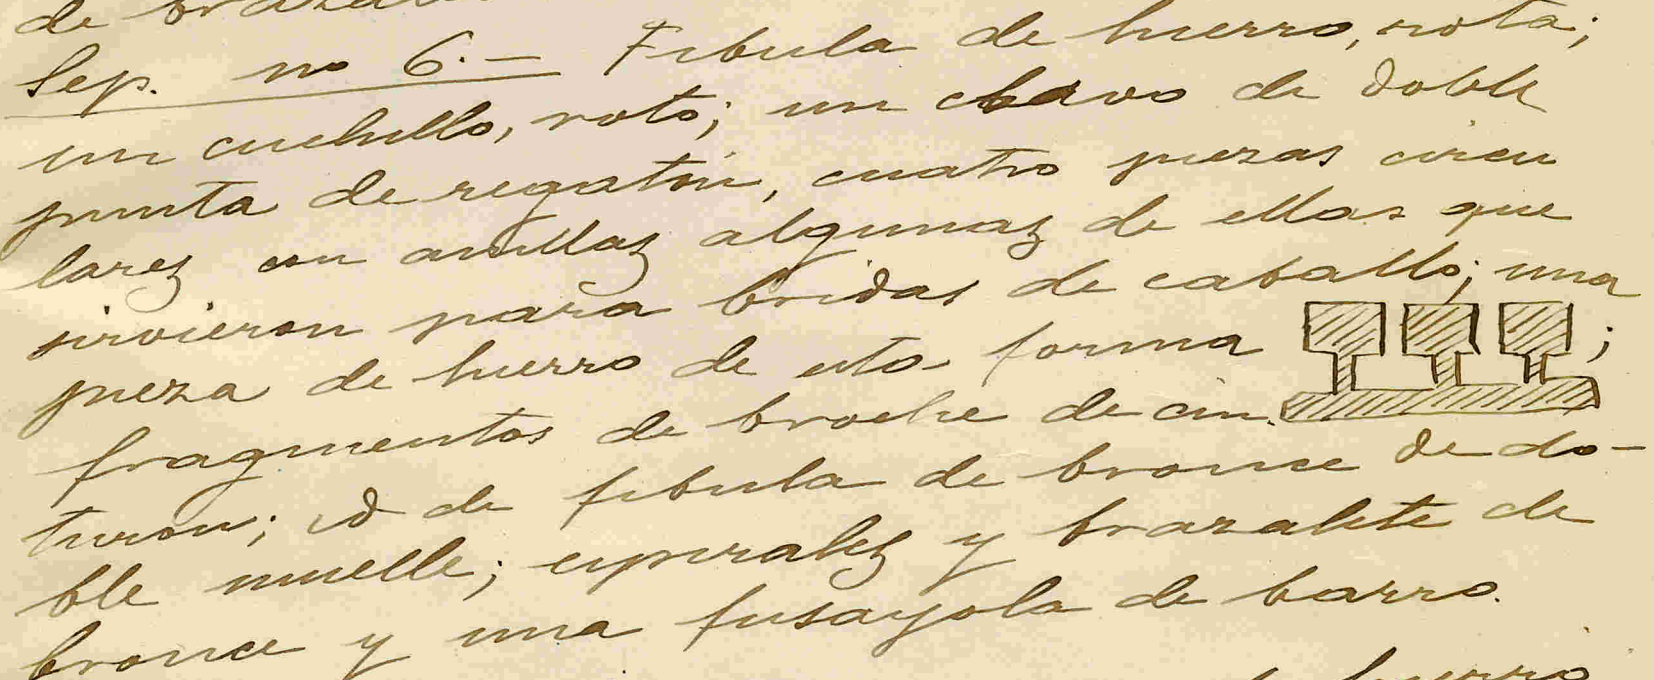 de brazal
Sep. no 6.— Fibula de hierro, rota;
un cuchillo, roto; un clavo de doble
punta de regatón, cuatro piezas circu
lares con anillas algunas de ellas que
sirvieron para bridas de caballo; una
pieza de hierro de esta forma ;
fragmentos de broche de cin.
turon; id de fibula de bronce de do-
ble muelle; espirales y brazalete de
bronce y una fusayola de barro.
hierro